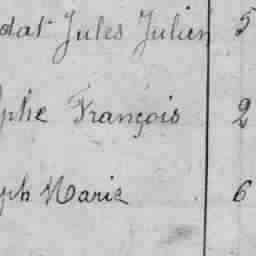 dat Jules Julien 5
phe François 2
ph Marie 6